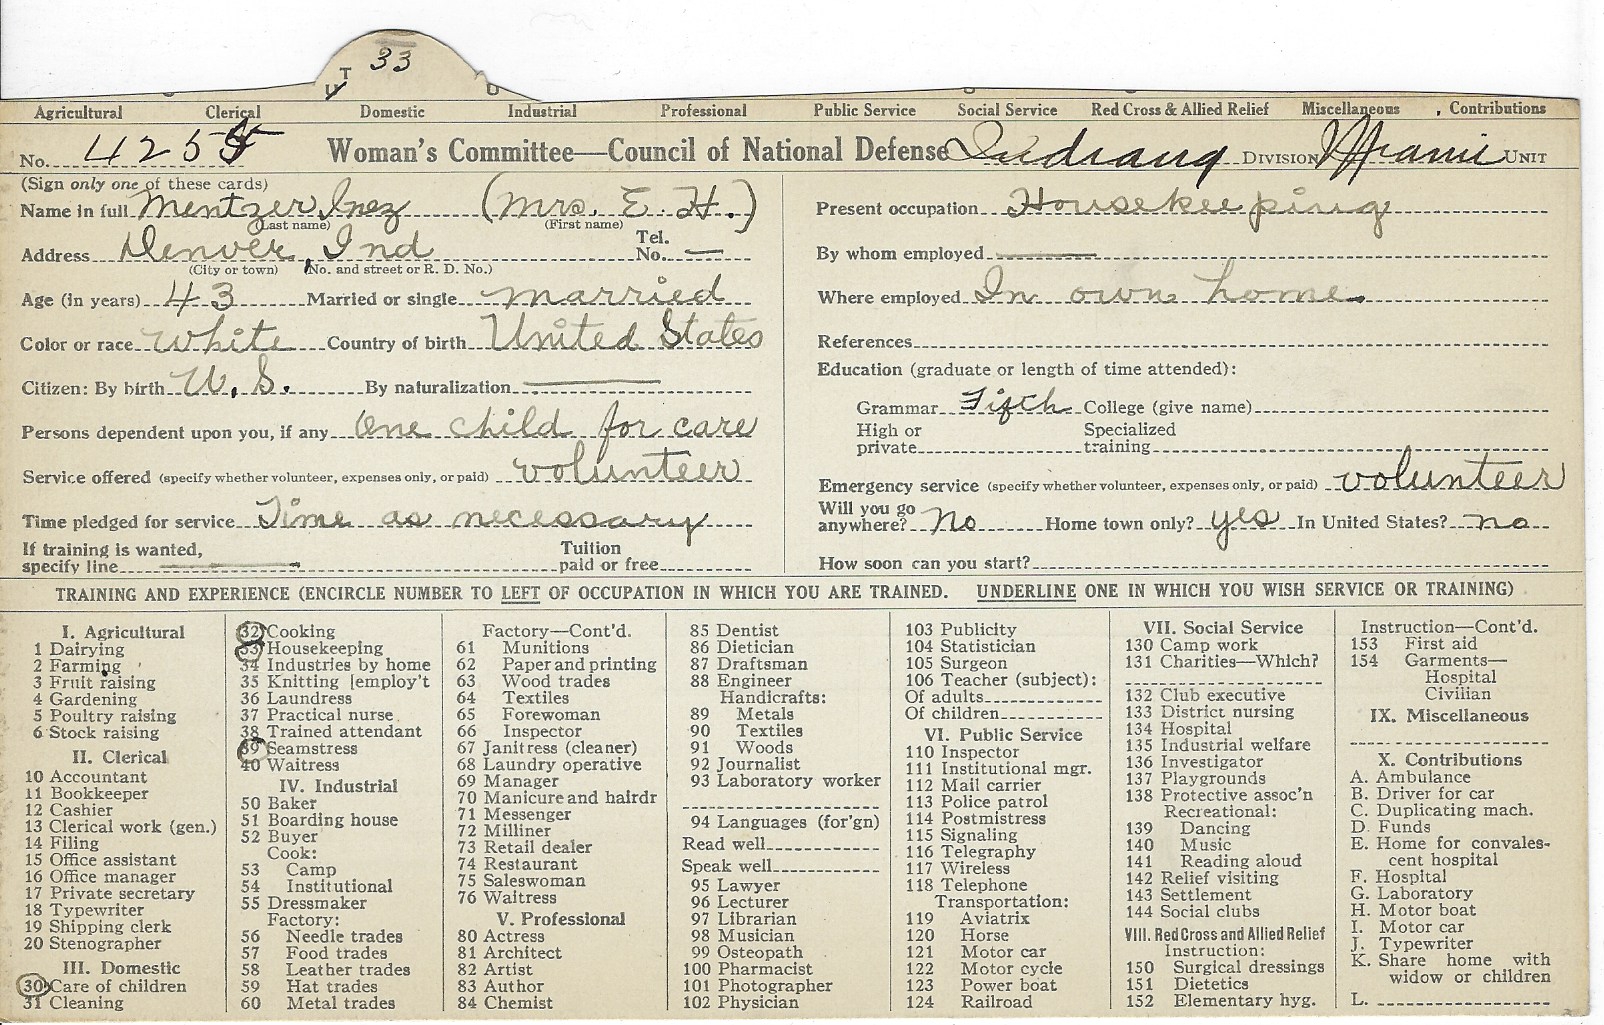 33
T
U
Agricultural Clerical Domestic Industrial Professional Public Service Social Service Red Cross & Allied Relief Miscellaneous Contributions
No. 4255 Woman's Committee—Council of National Defense Indiana DIVISION Miami UNIT
(Sign only one of these cards)
Name in full Mentzer, Inez (Mrs. E. H.)
(Last name) (First name)
Address Denver, Ind Tel. No. —
(City or town) (No. and street or R. D. No.)
Age (in years) 43 Married or single married
Color or race white Country of birth United States
Citizen: By birth U. S. By naturalization ——
Persons dependent upon you, if any One child for care
Service offered (specify whether volunteer, expenses only, or paid) volunteer
Time pledged for service Time as necessary
If training is wanted, specify line —— Tuition paid or free
Present occupation Housekeeping
By whom employed ——
Where employed In own home.
References
Education (graduate or length of time attended):
Grammar Fifth College (give name)
High or private Specialized training
Emergency service (specify whether volunteer, expenses only, or paid) volunteer
Will you go anywhere? no Home town only? yes In United States? no
How soon can you start?
TRAINING AND EXPERIENCE (ENCIRCLE NUMBER TO LEFT OF OCCUPATION IN WHICH YOU ARE TRAINED. UNDERLINE ONE IN WHICH YOU WISH SERVICE OR TRAINING)
I. Agricultural
1 Dairying
2 Farming
3 Fruit raising
4 Gardening
5 Poultry raising
6 Stock raising
II. Clerical
10 Accountant
11 Bookkeeper
12 Cashier
13 Clerical work (gen.)
14 Filing
15 Office assistant
16 Office manager
17 Private secretary
18 Typewriter
19 Shipping clerk
20 Stenographer
III. Domestic
30 Care of children
31 Cleaning
32 Cooking
33 Housekeeping
34 Industries by home
35 Knitting [employ't
36 Laundress
37 Practical nurse
38 Trained attendant
39 Seamstress
40 Waitress
IV. Industrial
50 Baker
51 Boarding house
52 Buyer
Cook:
53 Camp
54 Institutional
55 Dressmaker
Factory:
56 Needle trades
57 Food trades
58 Leather trades
59 Hat trades
60 Metal trades
Factory—Cont'd.
61 Munitions
62 Paper and printing
63 Wood trades
64 Textiles
65 Forewoman
66 Inspector
67 Janitress (cleaner)
68 Laundry operative
69 Manager
70 Manicure and hairdr
71 Messenger
72 Milliner
73 Retail dealer
74 Restaurant
75 Saleswoman
76 Waitress
V. Professional
80 Actress
81 Architect
82 Artist
83 Author
84 Chemist
85 Dentist
86 Dietician
87 Draftsman
88 Engineer
Handicrafts:
89 Metals
90 Textiles
91 Woods
92 Journalist
93 Laboratory worker
94 Languages (for'gn)
Read well
Speak well
95 Lawyer
96 Lecturer
97 Librarian
98 Musician
99 Osteopath
100 Pharmacist
101 Photographer
102 Physician
103 Publicity
104 Statistician
105 Surgeon
106 Teacher (subject):
Of adults
Of children
VI. Public Service
110 Inspector
111 Institutional mgr.
112 Mail carrier
113 Police patrol
114 Postmistress
115 Signaling
116 Telegraphy
117 Wireless
118 Telephone
Transportation:
119 Aviatrix
120 Horse
121 Motor car
122 Motor cycle
123 Power boat
124 Railroad
VII. Social Service
130 Camp work
131 Charities—Which?
132 Club executive
133 District nursing
134 Hospital
135 Industrial welfare
136 Investigator
137 Playgrounds
138 Protective assoc'n
Recreational:
139 Dancing
140 Music
141 Reading aloud
142 Relief visiting
143 Settlement
144 Social clubs
VIII. Red Cross and Allied Relief
Instruction:
150 Surgical dressings
151 Dietetics
152 Elementary hyg.
Instruction—Cont'd.
153 First aid
154 Garments—
Hospital
Civilian
IX. Miscellaneous
X. Contributions
A. Ambulance
B. Driver for car
C. Duplicating mach.
D. Funds
E. Home for convalescent hospital
F. Hospital
G. Laboratory
H. Motor boat
I. Motor car
J. Typewriter
K. Share home with widow or children
L.